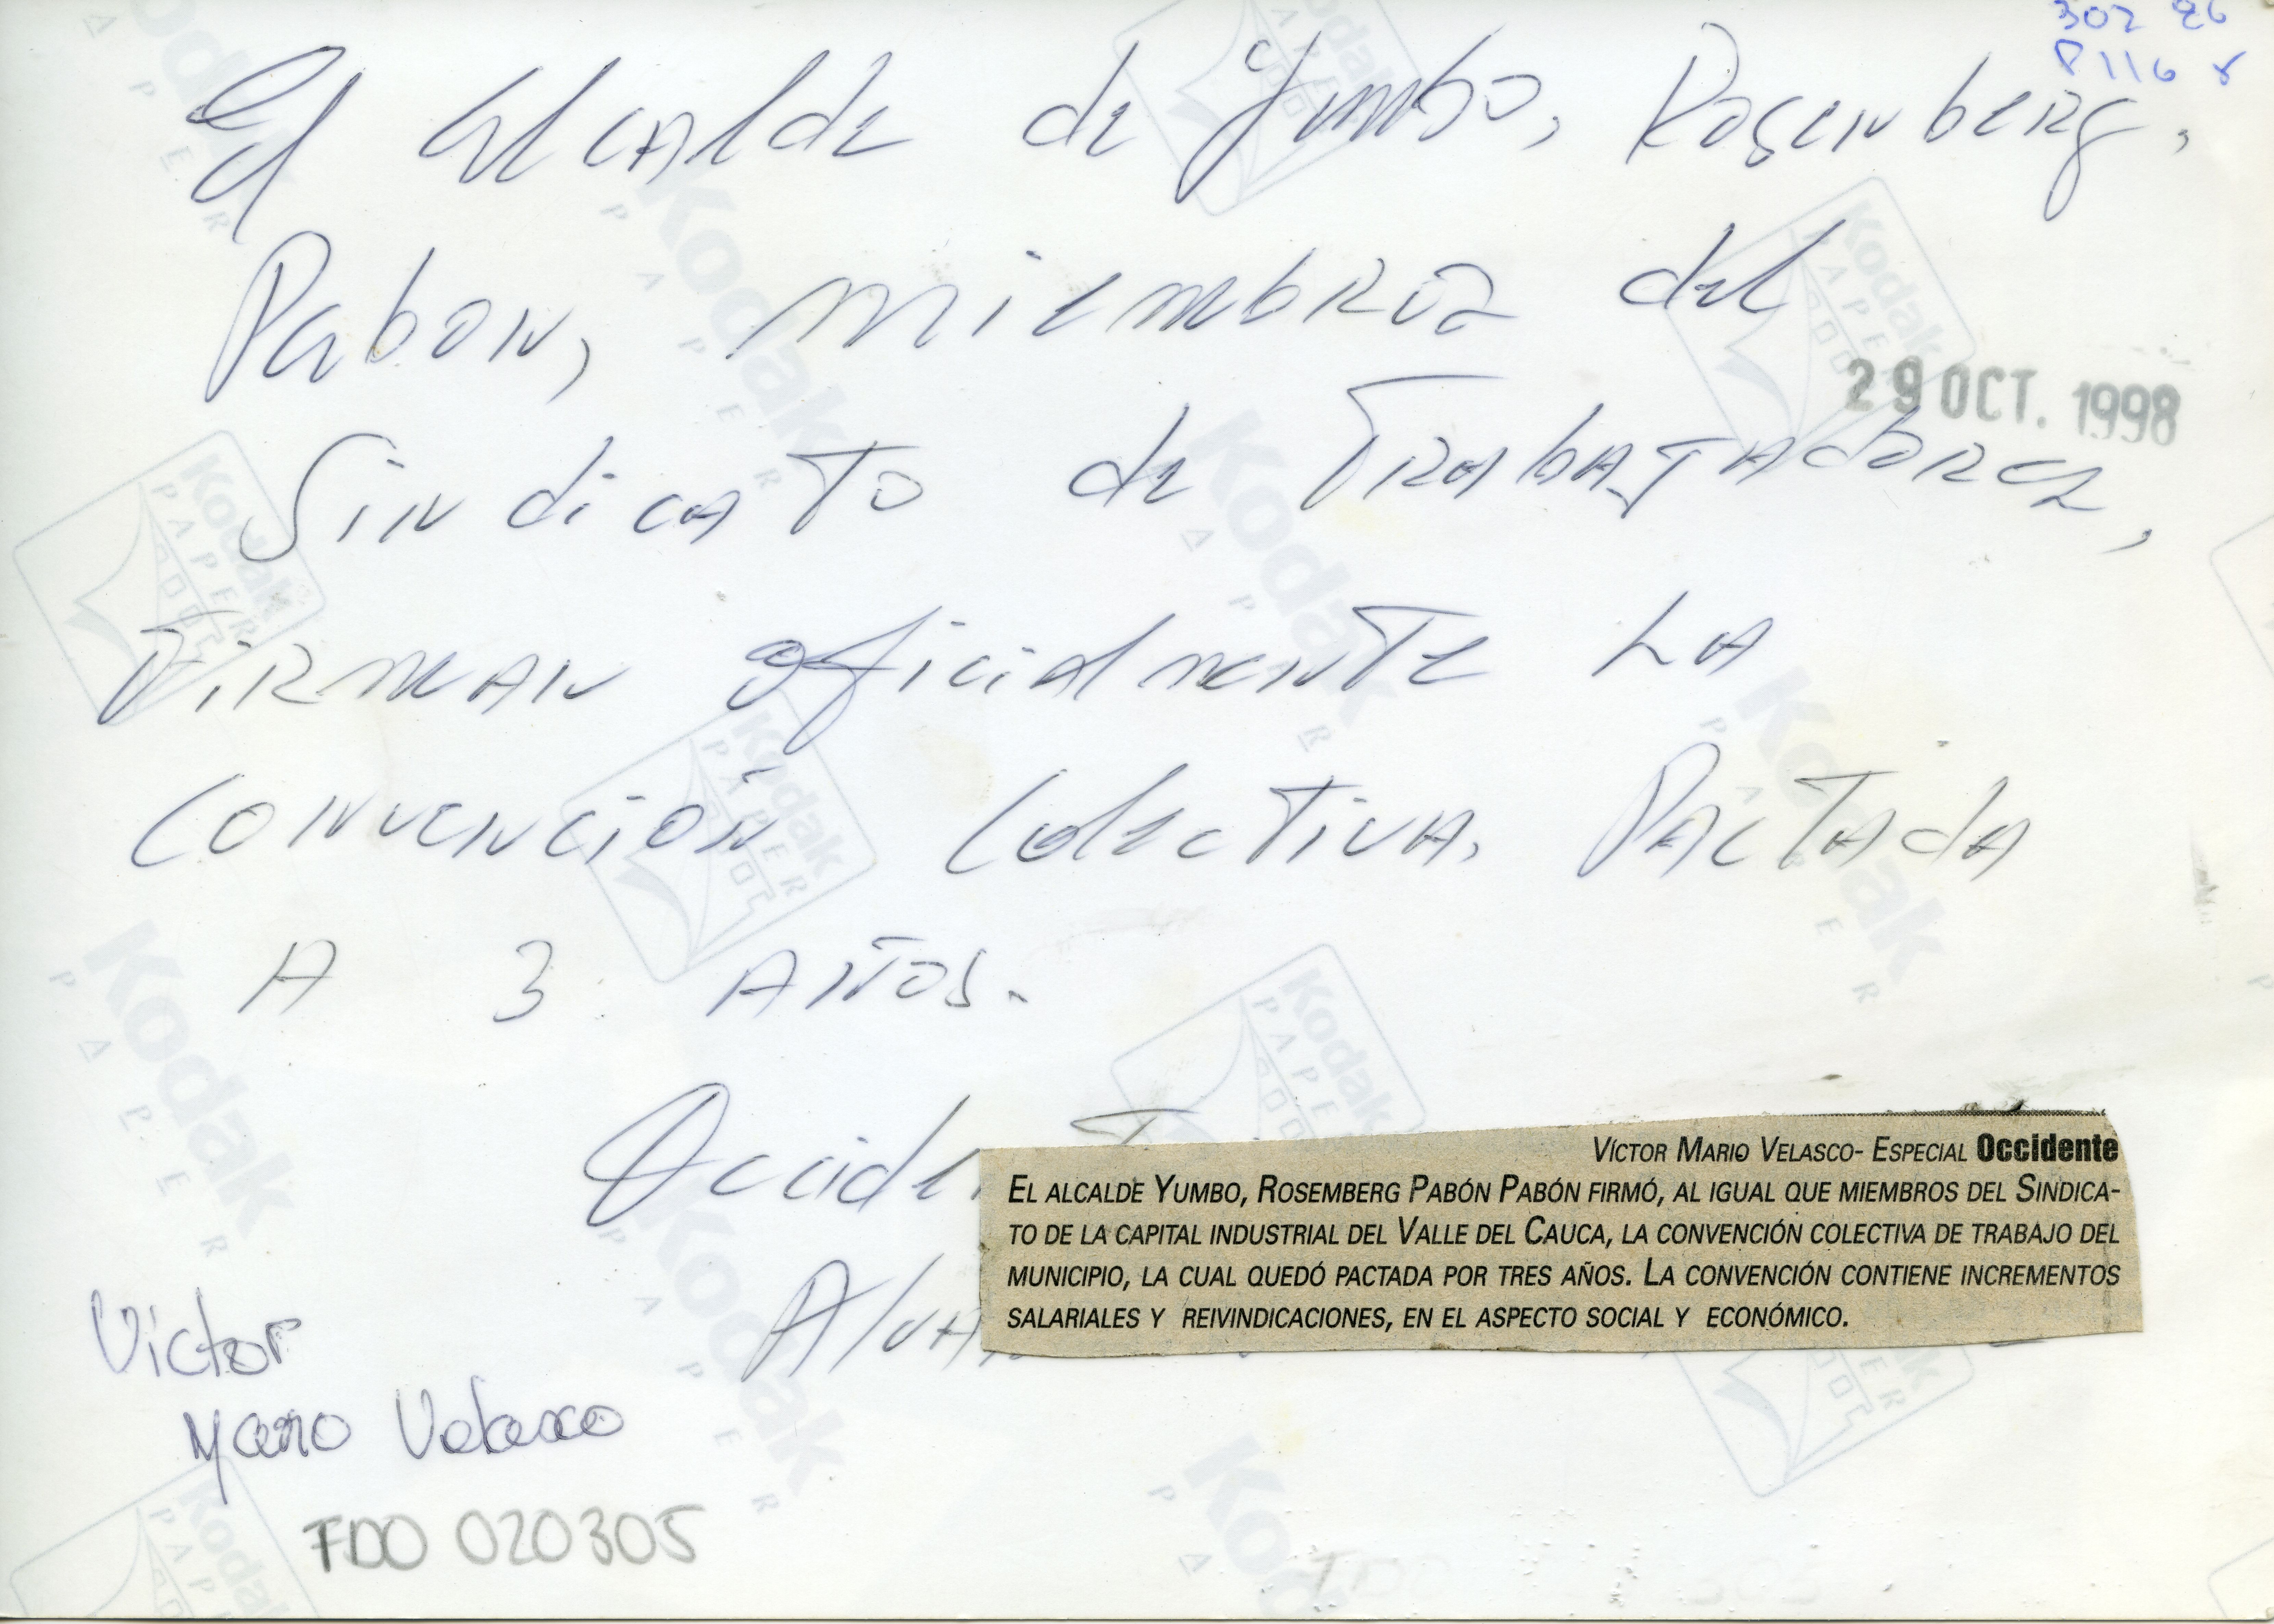 302 26
P116 r
El Alcalde de Yumbo, Rosenberg,
Pabon, miembros del
29 OCT. 1998
Sindicato de Trabajadores,
Firman oficialmente La
convención Colectiva. Pactada
A 3 Años.
VÍCTOR MARIO VELASCO- ESPECIAL Occidente
EL ALCALDE YUMBO, ROSEMBERG PABÓN PABÓN FIRMÓ, AL IGUAL QUE MIEMBROS DEL SINDICA-
TO DE LA CAPITAL INDUSTRIAL DEL VALLE DEL CAUCA, LA CONVENCIÓN COLECTIVA DE TRABAJO DEL
MUNICIPIO, LA CUAL QUEDÓ PACTADA POR TRES AÑOS. LA CONVENCIÓN CONTIENE INCREMENTOS
SALARIALES Y REIVINDICACIONES, EN EL ASPECTO SOCIAL Y ECONÓMICO.
Victor
Mario Velasco
FDO 020305